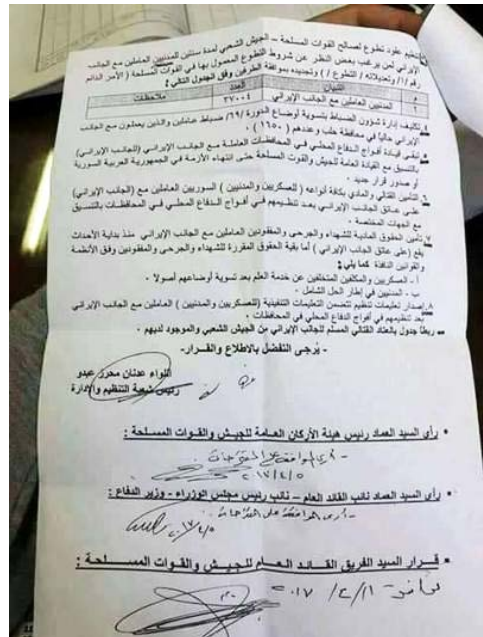 تنظيم عقود تطوع لصالح القوات المسلحة – الجيش الشعبي لمدة سنتين للمدنيين العاملين مع الجانب
الإيراني لمن يرغب بغض النظر عن شروط التطوع المعمول بها في القوات المسلحة ( الأمر الدائم
رقم /١/ وتعديلاته / التطوع / ) وتجديده بموافقة الطرفين وفق الجدول التالي :
م البيان العدد ملاحظات
المدنيين العاملين مع الجانب الإيراني ٣٧٠٠٤
تكليف إدارة شؤون الضباط بتسوية أوضاع الدورة /٦٩/ ضباط عاملين والذين يعملون مع الجانب
الإيراني حالياً في محافظة حلب وعددهم ( ١٦٥٠ ) .
تبقى قيادة أفواج الدفاع المحلي في المحافظات العاملة مع الجانب الإيراني (للجانب الإيراني)
بالتنسيق مع القيادة العامة للجيش والقوات المسلحة حتى انتهاء الأزمة في الجمهورية العربية السورية
أو صدور قرار جديد .
التأمين القتالي والمادي بكافة أنواعه ( للعسكريين والمدنيين ) السوريين العاملين مع (الجانب الإيراني)
على عاتق الجانب الإيراني بعد تنظيمهم في أفواج الدفاع المحلي في المحافظات بالتنسيق
مع الجهات المختصة .
٧. تأمين الحقوق المادية للشهداء والجرحى والمفقودين العاملين مع الجانب الإيراني منذ بداية الأحداث
يقع (على عاتق الجانب الإيراني ) أما بقية الحقوق المقررة للشهداء والجرحى والمفقودين وفق الأنظمة
والقوانين النافذة كما يلي :
أ – العسكريين والمكلفين المتخلفين عن خدمة العلم بعد تسوية أوضاعهم أصولاً .
ب – المدنيين في إطار الحل الشامل .
٨. إصدار تعليمات تنظيم تتضمن التعليمات التنفيذية (للعسكريين والمدنيين ) العاملين مع الجانب الإيراني
بعد تنظيمهم في أفواج الدفاع المحلي في المحافظات .
ربطاً جدول بالعتاد القتالي المسلم للجانب الإيراني من الجيش الشعبي والموجود لديهم .
- يُرجى التفضل بالاطلاع والقرار-
اللواء عدنان محرز عبدو
رئيس شعبة التنظيم والإدارة
• رأي السيد العماد رئيس هيئة الأركان العامة للجيش والقوات المسلحة :
- أرى الموافقة على المقترحات
٢٠١٧/٤/٥
• رأي السيد العماد نائب القائد العام – نائب رئيس مجلس الوزراء - وزير الدفاع :
- أرى الموافقة على المقترحات
٢٠١٧/٤/٥
• قرار السيد الفريق القائد العام للجيش والقوات المسلحة :
موافق ١١/٤/٢٠١٧